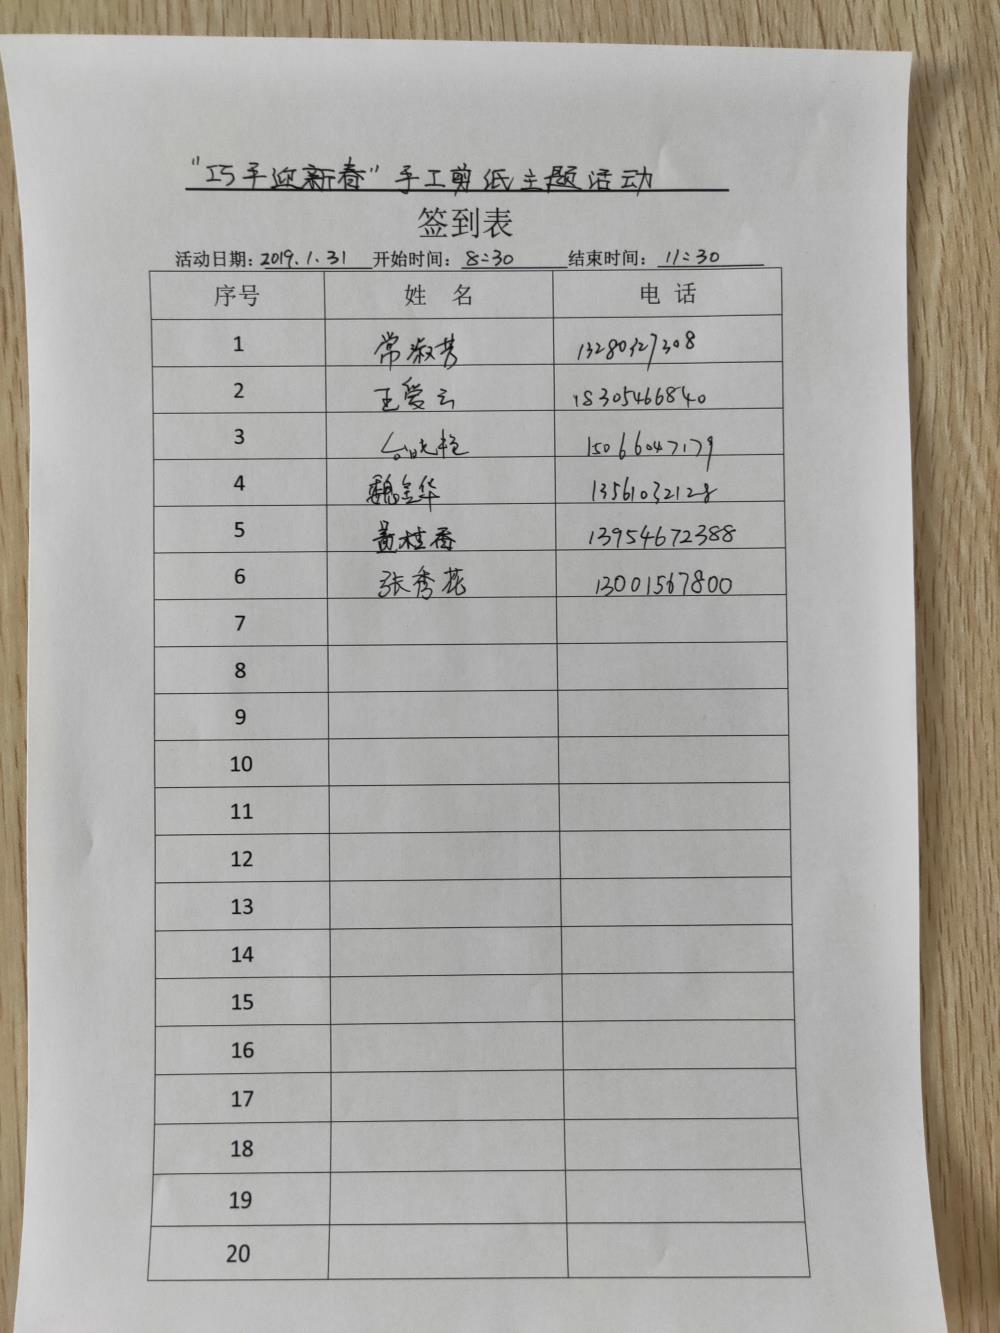 “巧手迎新春”手工剪纸主题活动
签到表
活动日期：2019.1.31 开始时间：8:30 结束时间：11:30
序号 姓 名 电 话
1 常淑芳 13280327308
2 王爱云 18305466840
3 15066047179
4 魏金华 13561032128
5 黄桂香 13954672388
6 张秀花 13001567800
7
8
9
10
11
12
13
14
15
16
17
18
19
20